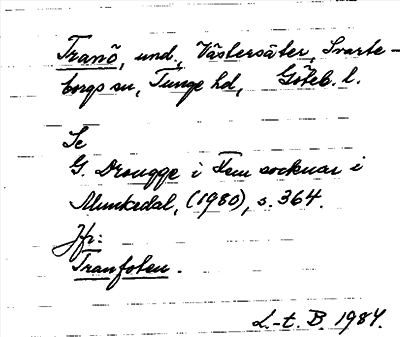 Tranö, und. Västersäter, Svarte-
borgs sn, Tunge hd, Göteb. l.
Se
G. Drougge i Fem socknar i
Munkedal, (1980), s. 364.
Jfr:
Tranfoten.
L.-t. B. 1984.